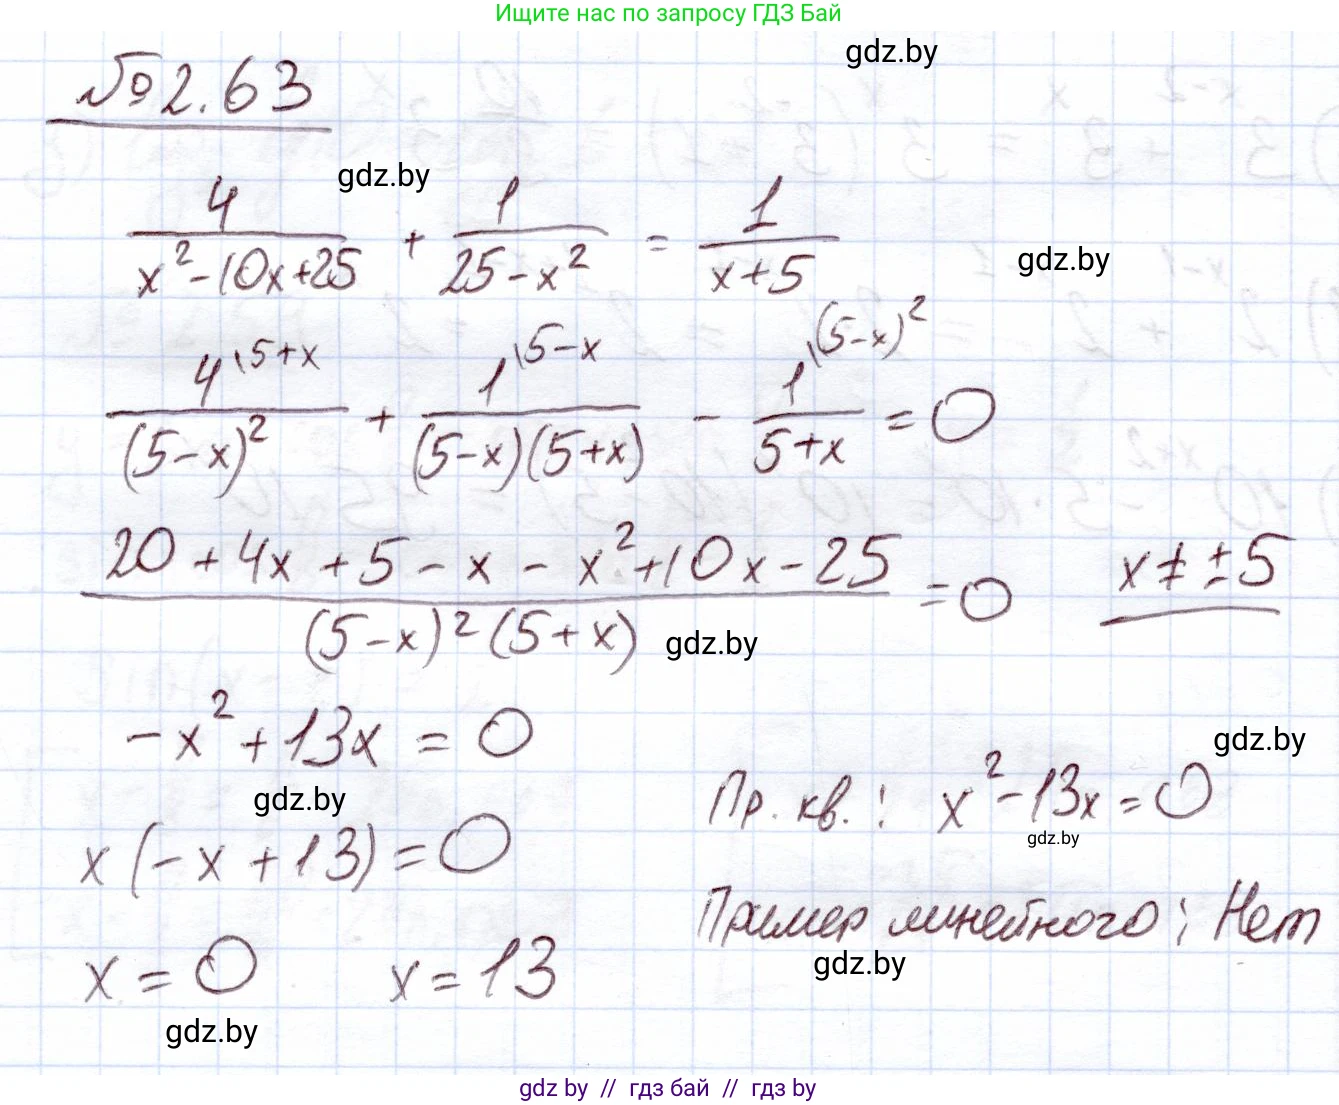 Ищите нас по запросу ГДЗ Бай
gdz.by
№ 2.63
gdz.by
4/(x²-10x+25) + 1/(25-x²) = 1/(x+5)
gdz.by
4\5+x/(5-x)² + 1\5-x/((5-x)(5+x)) - 1\(5-x)²/(5+x) = 0
(20+4x+5-x-x²+10x-25)/((5-x)²(5+x)) = 0 x≠±5
gdz.by
-x²+13x = 0
gdz.by
gdz.by
Пр. кв.: x²-13x=0
gdz.by
x(-x+13)=0
Пример линейного: Нет
gdz.by
x=0 x=13
gdz.by
gdz by // гдз бай // гдз by